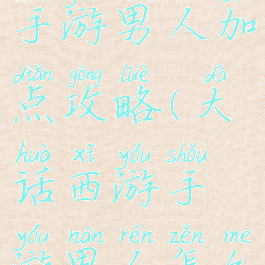 手游男人加
diǎn gōng lüè dà
点攻略(大
huà xī yóu shǒu
话西游手
yóu nán rén zěn me
游男人怎么